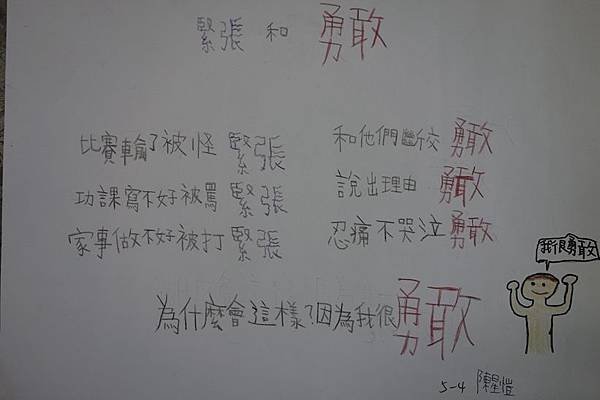 緊張 和 勇敢
比賽輸了被怪 緊張
功課寫不好被罵 緊張
家事做不好被打 緊張
和他們斷交 勇敢
說出理由 勇敢
忍痛不哭泣 勇敢
為什麼會這樣?因為我很勇敢
我很勇敢
5-4 陳星愷